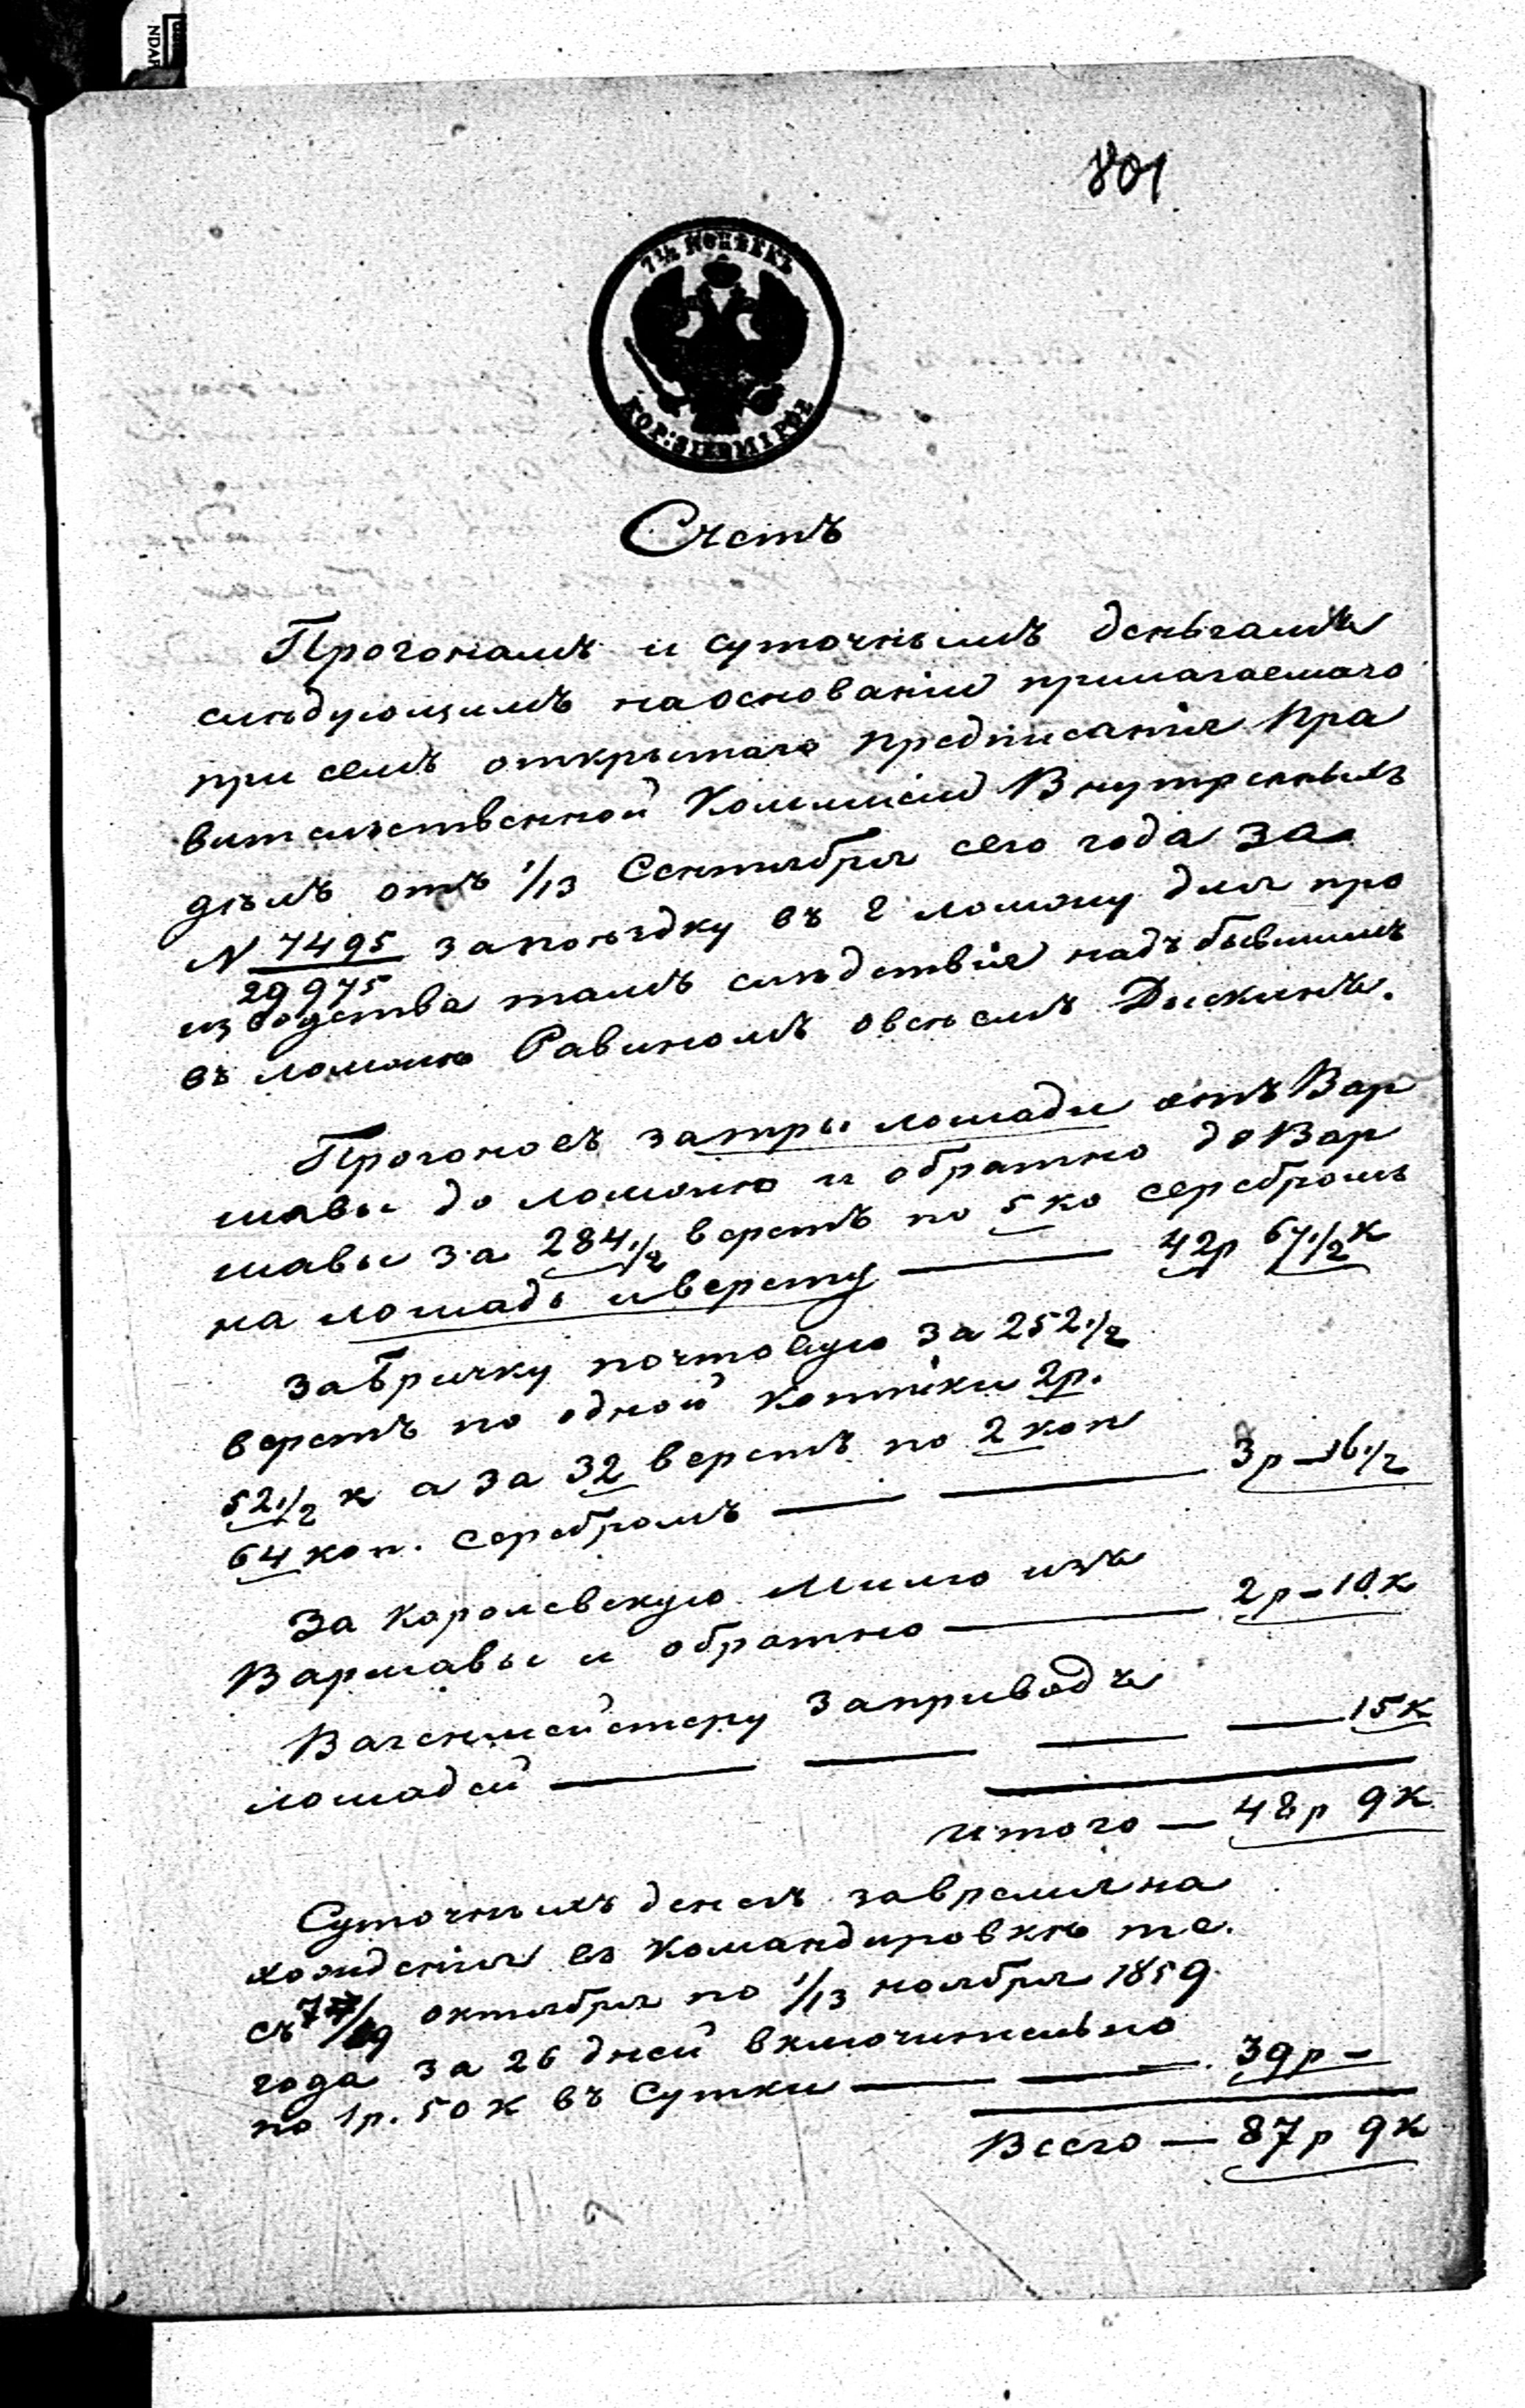 801
7½ КОПѢЕКЪ
KOP: SREBREM
Счетъ
Прогонамъ и суточнымъ деньгамъ
слѣдующимъ на основаніи прилагаемаго
при семъ открытаго предписанія Пра
вительственной Коммисіи Внутренныхъ
дѣлъ отъ 1/13 Сентября сего года за
N 7495/29975 за поѣздку въ г Ломжу для про
изводства тамъ слѣдствія надъ бывшимъ
въ Ломжѣ Равиномъ Овсѣемъ Дискинъ.
Прогоновъ за три лошади отъ Вар
шавы до Ломжи и обратно до Вар
шавы за 284 1/2 верстъ по 5 ко серебромъ
на лошадь и версту — 42р 67 1/2 к
За Бричку почтовую за 252 1/2
верстъ по одной копѣйки 2р.
52 1/2 к а за 32 верстъ по 2 коп
64 коп. серебромъ — — 3р — 16 1/2
За Королевскую Милю изъ
Варшавы и обратно — 2р — 10 к
Вагенмейстеру за приводъ
лошадей — — — — 15 к
Итого — 48р 9 к
Суточныхъ денегъ за время на
хожденія въ командировкѣ т.е.
съ 7/19 октября по 1/13 ноября 1859
года за 26 дней включительно
по 1р. 50 к въ Сутки — — 39р —
Всего — 87р 9 к